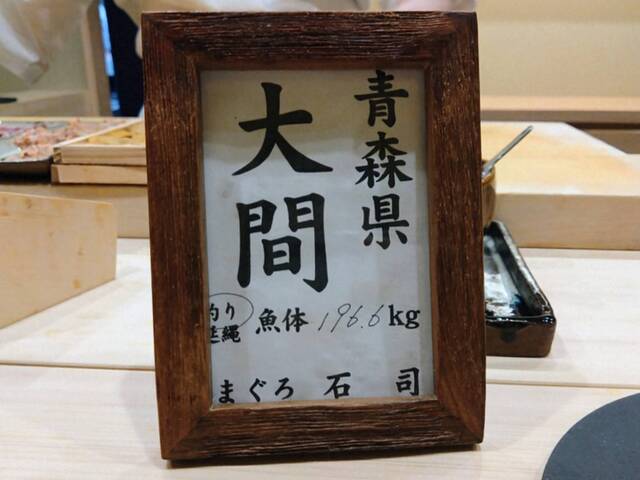 青森県
大間
釣り
延縄
魚体 196.6kg
まぐろ 石司